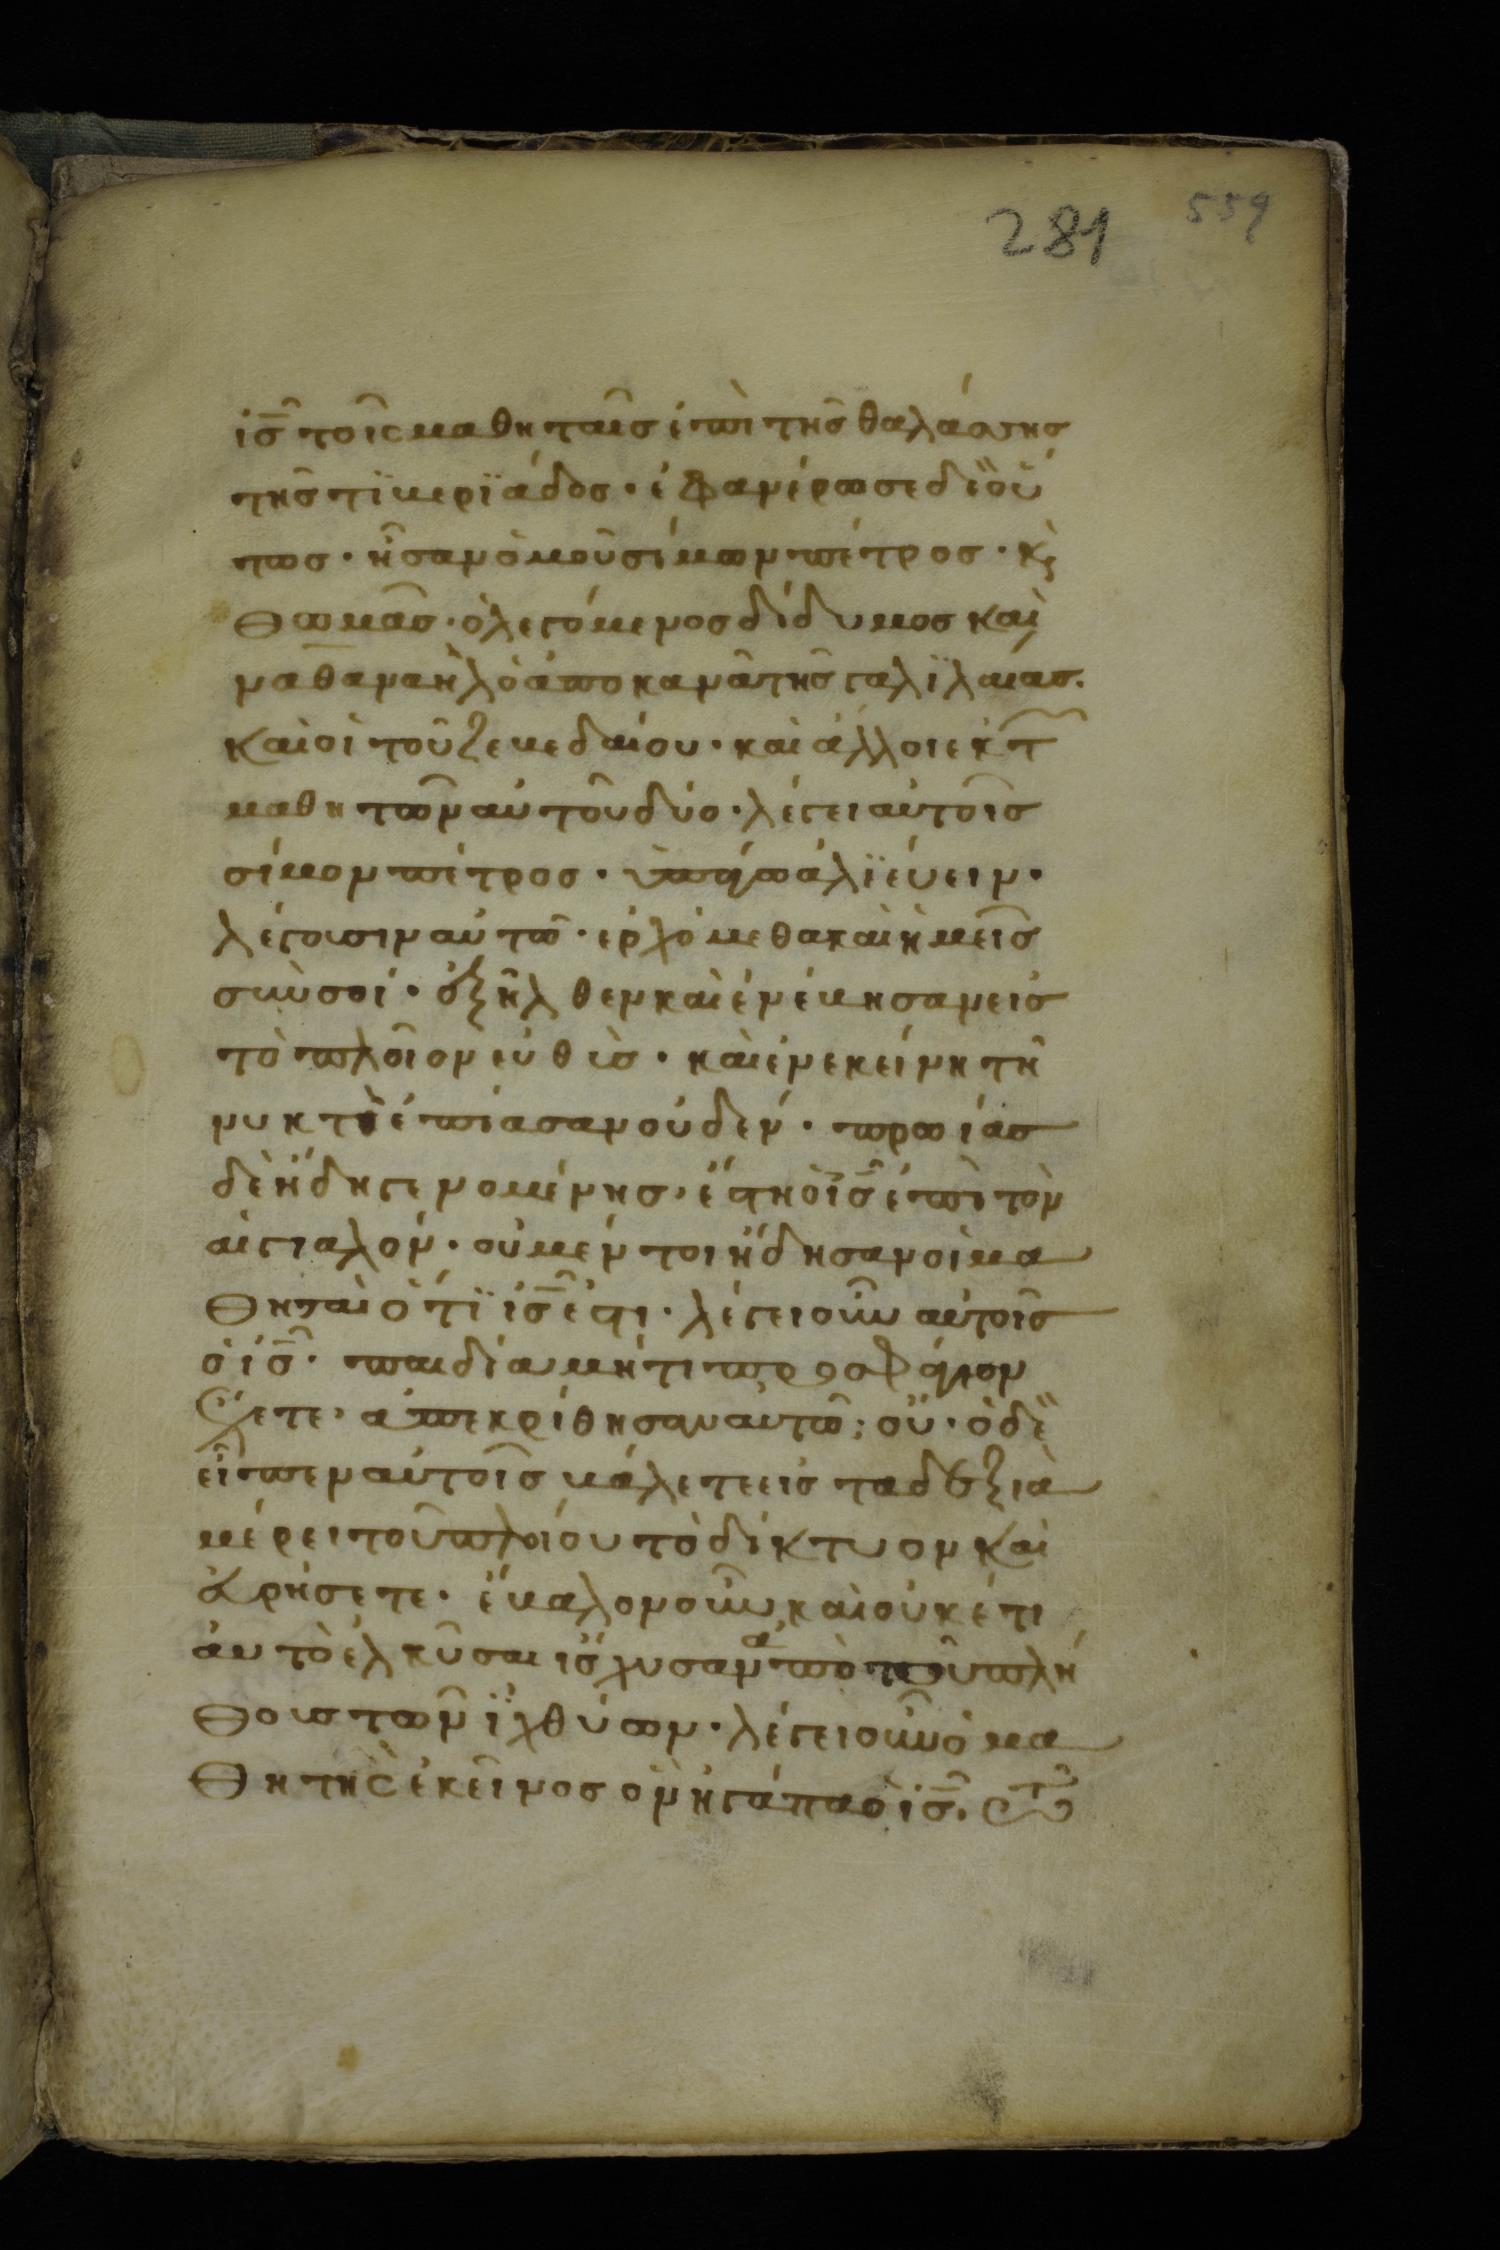 281 559
ις̅ τοῖς μαθηταῖς ἐπὶ τῆς θαλάσσης
τῆς τϊβερϊάδος· ἐφανέρωσε δὲ οὕ
τως· ἦσαν ὁμοῦ σίμων πέτρος· κ̀
θωμᾶς· ὁ λεγόμενος δίδυμος καὶ
ναθαναὴλ ὁ ἀπο κανᾶ τῆς γαλϊλαίας.
καὶ οἱ τοῦ ζεβεδαίου· καὶ ἄλλοι ἐκ τ
μαθητῶν αὐτοῦ δύο· λέγει αὐτοῖς
σίμον πέτρος· ὑπάγω ἁλϊεύειν·
λέγουσιν αὐτῶ· ἐρχόμεθα καὶ ἡμεῖς
σὺν σοί· ἐξῆλθεν καὶ ἐνέβησαν εἰς
τὸ πλοῖον εὐθὺς· καὶ ἐν ἐκείνη τῆ
νυκτὶ ἐπίασαν οὐδέν· πρωίας
δὲ ἤδη γενομένης· ἔστη ὁ ις̅ ἐπὶ τὸν
αἰγιαλόν· οὐ μέν τοι ἤδησαν οἱ μα
θηταὶ ὅτϊ ις̅ ἐστι· λέγει οὖν αὐτοῖς
ὁ ις̅· παιδία μή τι προσφάγιον
ἔχετε· ἀπεκρίθησαν αυτῶ; οὔ· ὁ δὲ
εἶπεν αὐτοῖς βάλετε εἰς τα δεξιὰ
μέρει τοῦ πλοίου τὸ δίκτυον καὶ
εὑρήσετε· ἔβαλον οὖν καὶ οὐκέτι
ἀυτὸ ἑλκῦσαι ἴσχυσαν ἀπὸ τοῦ πλή
θους τῶν ϊχθύων· λέγει οὖν ὁ μα
θητὴς ἐκεῖνος ὃν ἠγάπα ὁ ις̅.